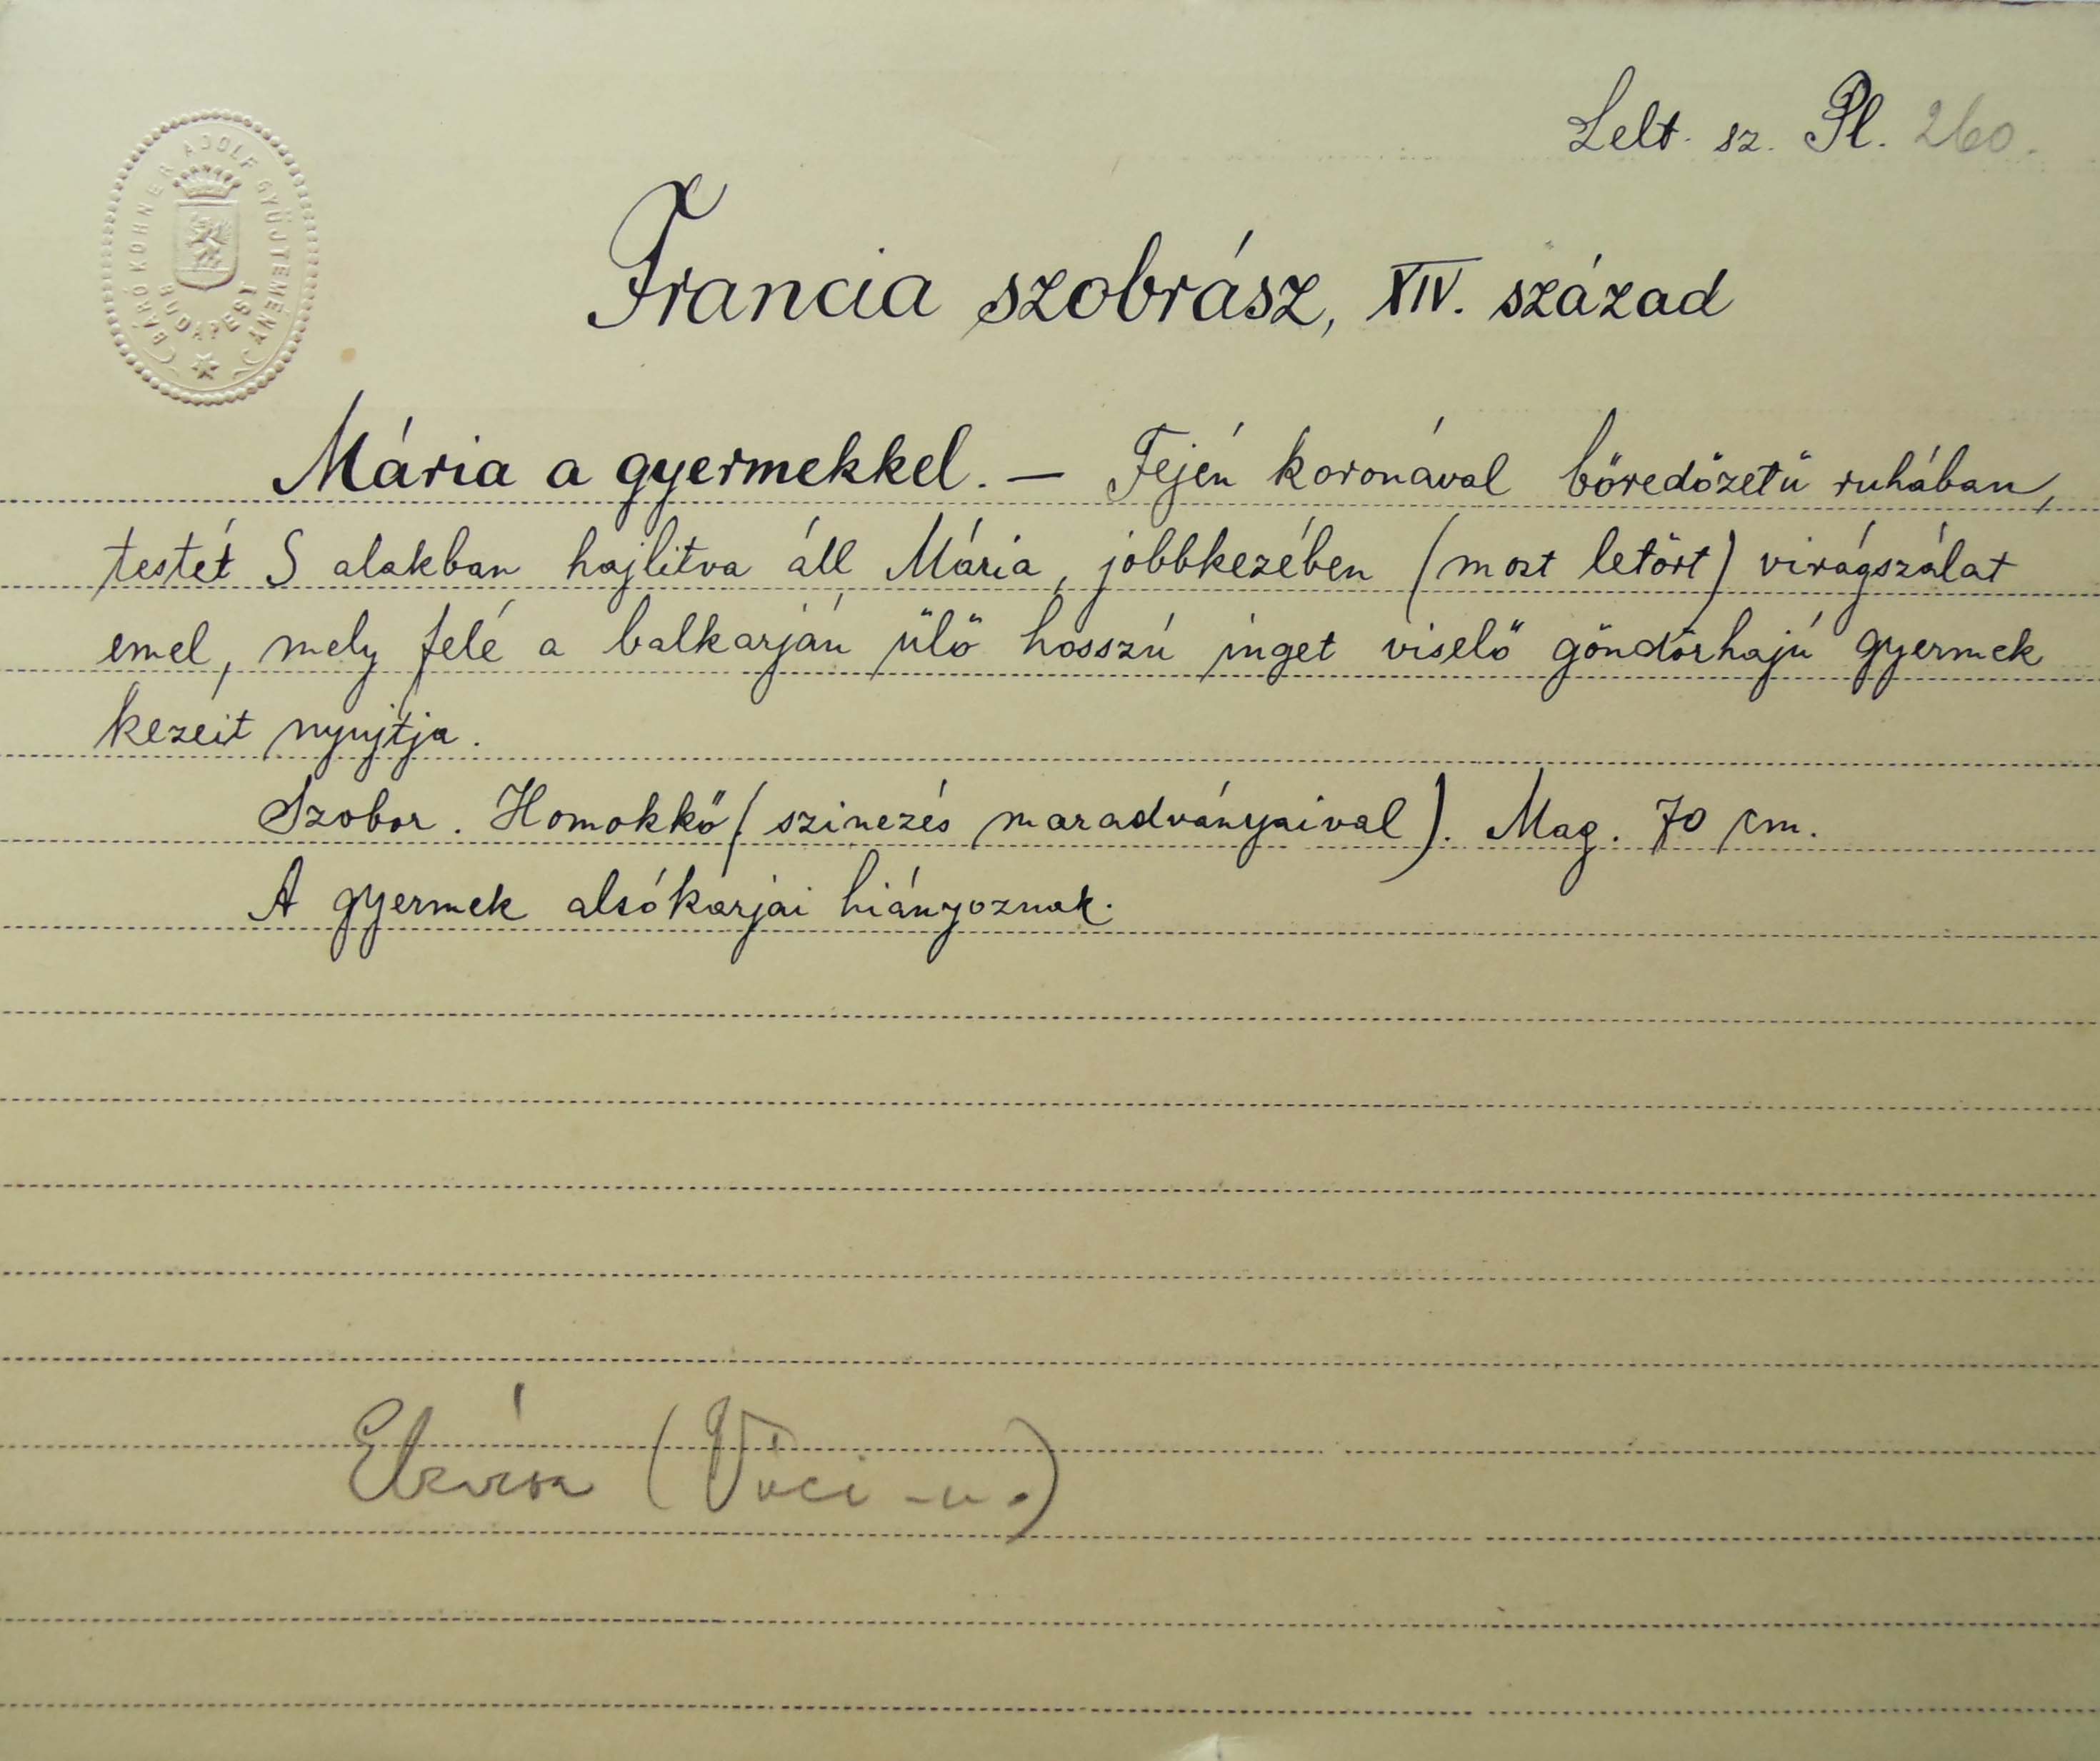 Lelt. sz. Pl. 260.
BÁRÓ KOHNER ADOLF GYÜJTEMÉNY
BUDAPEST
Francia szobrász, XIV. század
Mária a gyermekkel. — Fején koronával bőredőzetű ruhában,
testét S alakban hajlitva áll Mária, jobbkezében (most letört) virágszálat
emel, mely felé a balkarján ülő hosszú inget viselő göndörhajú gyermek
kezeit nyujtja.
Szobor. Homokkő (szinezés maradványaival). Mag. 70 cm.
A gyermek alsókarjai hiányoznak.
(Váci-u.)